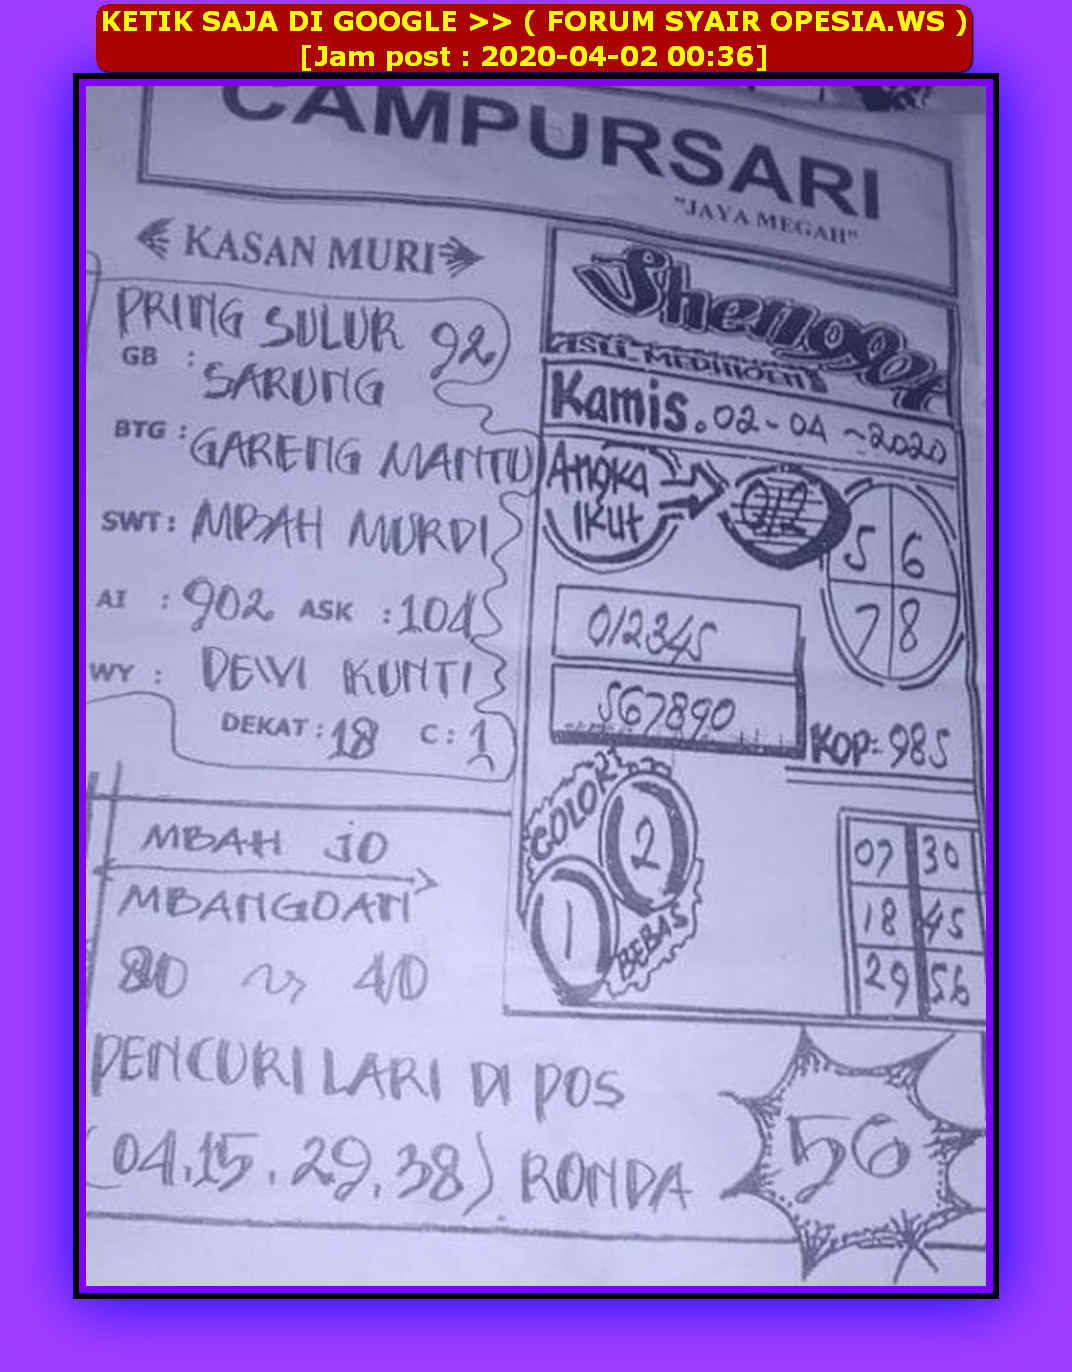 KETIK SAJA DI GOOGLE >> ( FORUM SYAIR OPESIA.WS )
[Jam post : 2020-04-02 00:36]
CAMPURSARI
"JAYA MEGAH"
KASAN MURI
PRING SULUR 92
GB : SARUNG
BTG : GARENG MANTU
SWT : MBAH MURDI
AI : 902 ASK : 104
WY : DEWI KUNTI
DEKAT : 18 C : 1
Shengot
ASLI
Kamis. 02-04-2020
Angka
Ikut
012
5 6
7 8
012345
567890
KOP= 985
COLOK
2
1
BEBAS
07 30
18 45
29 56
MBAH JO
MBANGDAN
80 40
PENCURI LARI DI POS
(04.15.29.38) RONDA
56